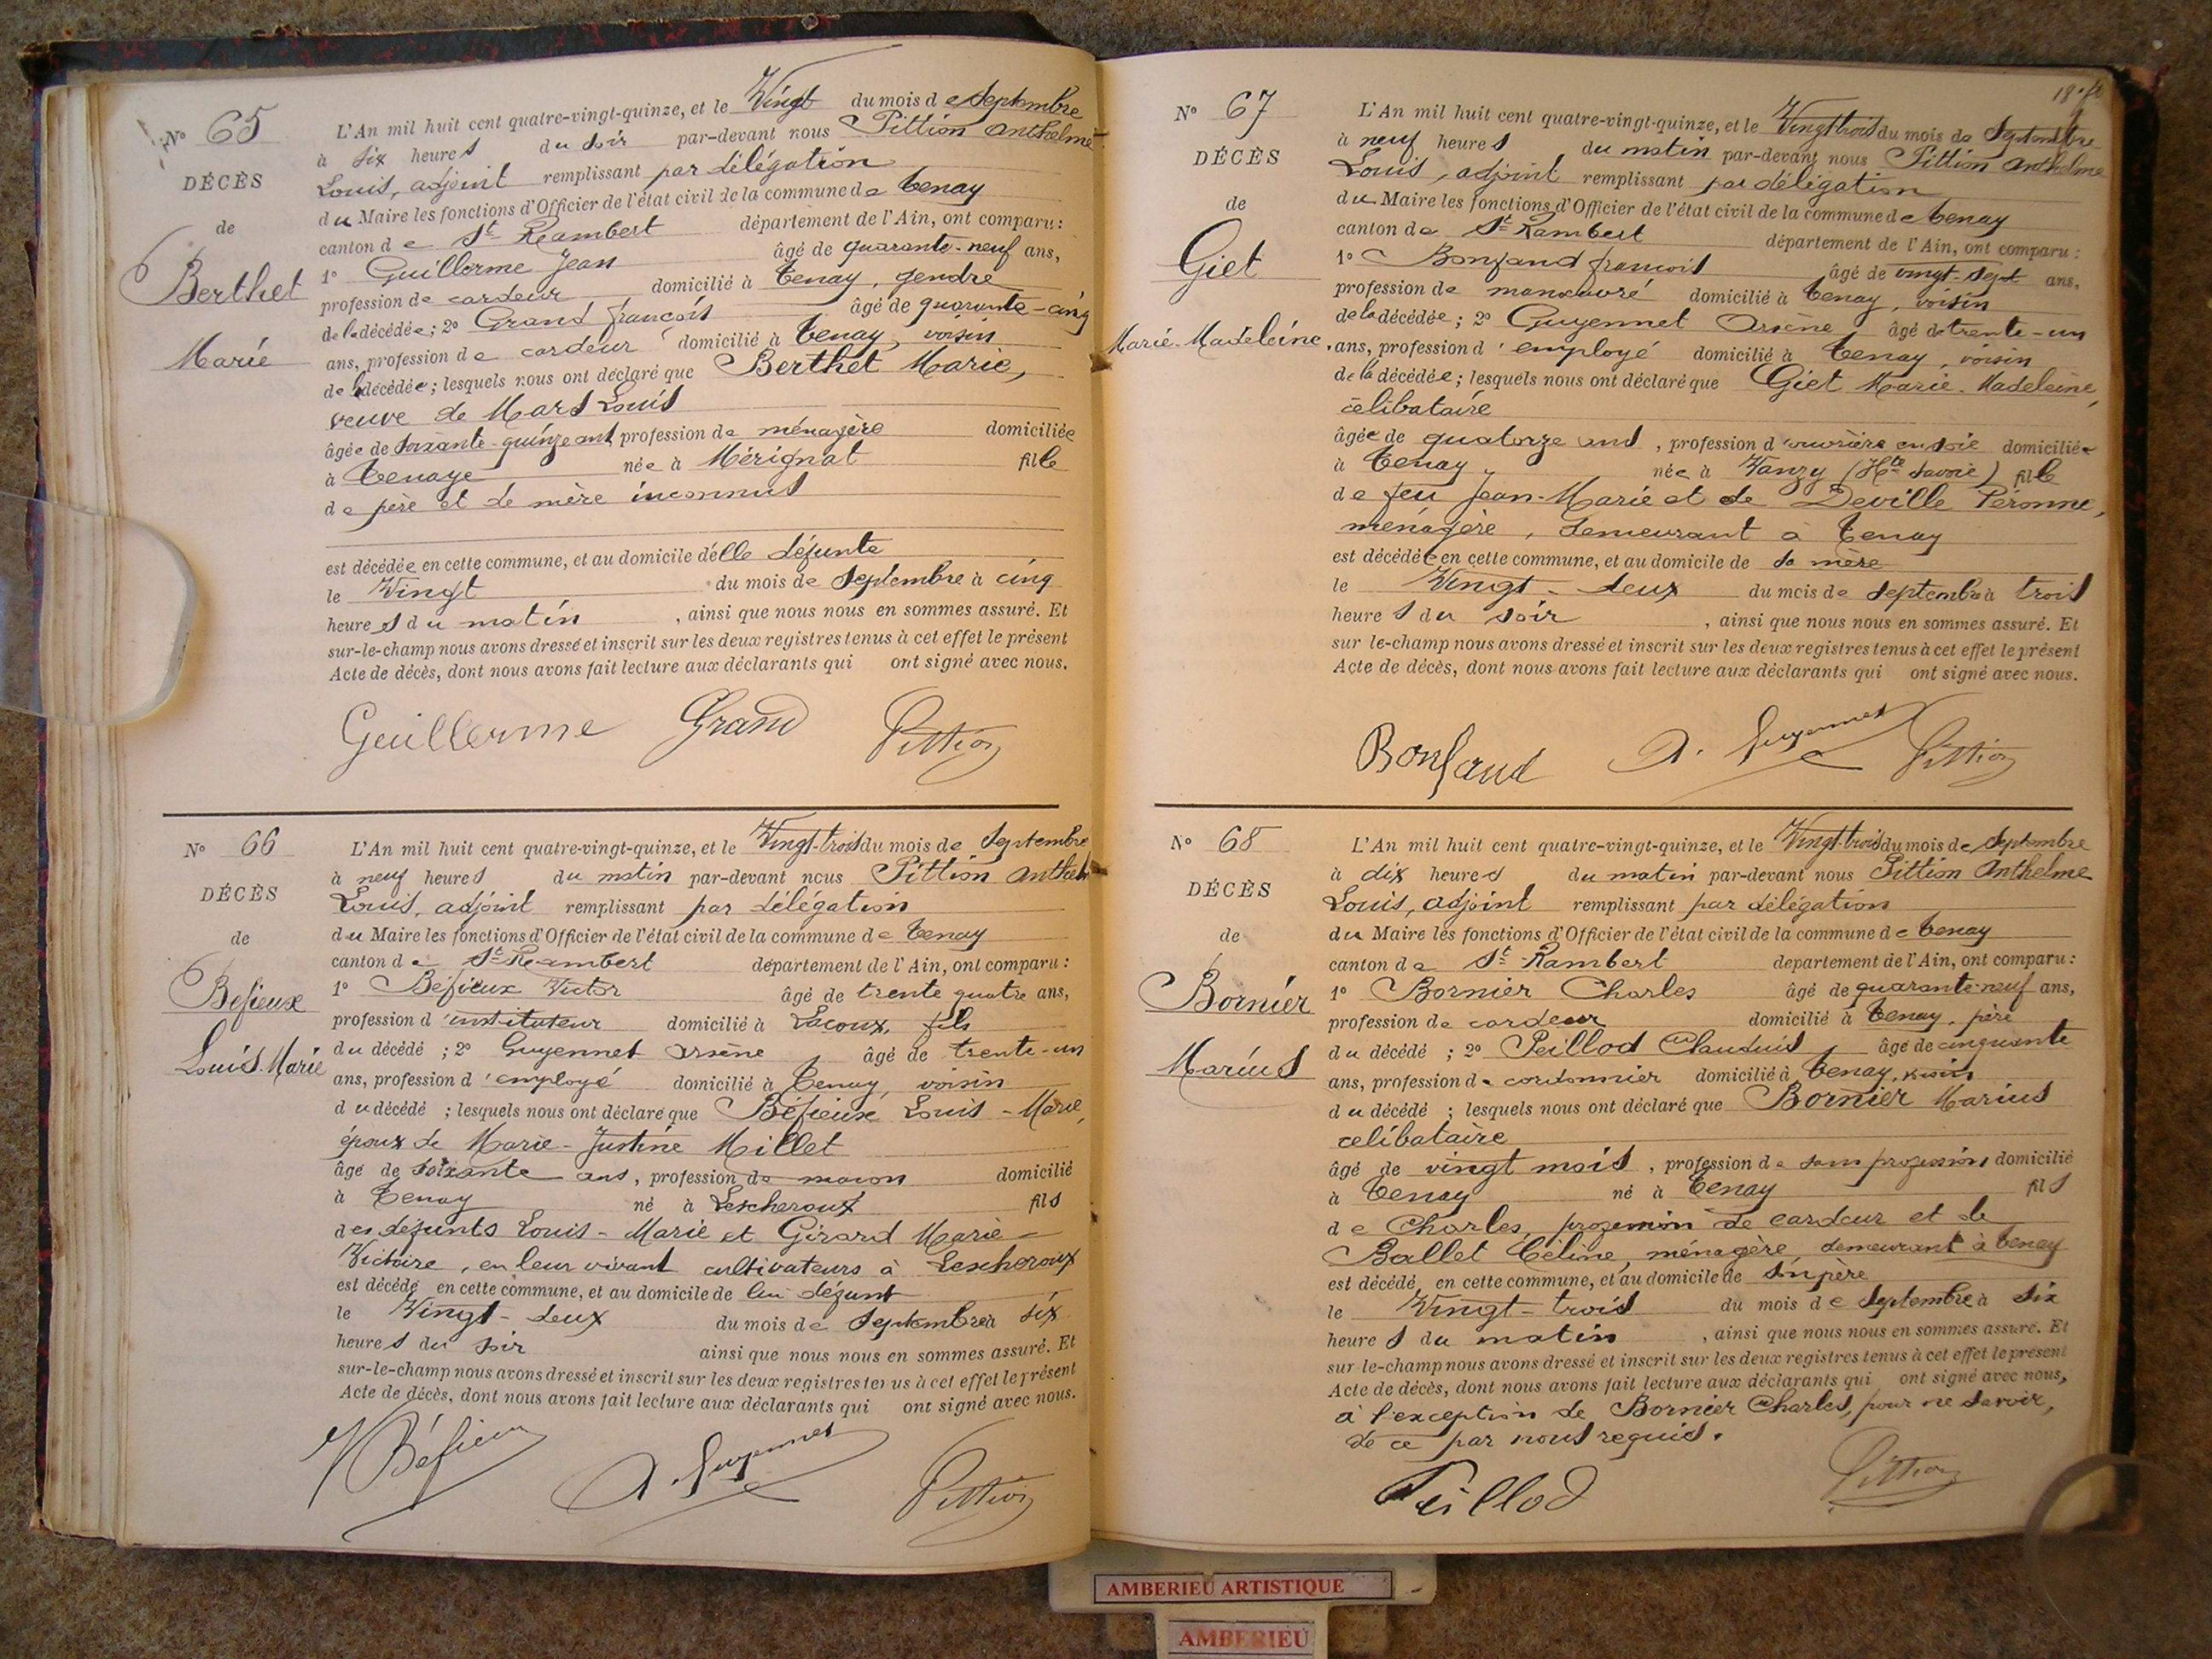 No 65
DÉCÈS
de
Berthet
Marie
L'An mil huit cent quatre-vingt-quinze, et le Vingt du mois de Septembre
à six heures du soir par-devant nous Pittion Anthelme
Louis, adjoint remplissant par délégation
du Maire les fonctions d'Officier de l'état civil de la commune de Tenay
canton de St Rambert département de l'Ain, ont comparu :
1o Guillerme Jean âgé de quarante-neuf ans,
profession de cardeur domicilié à Tenay, gendre
de la décédée ; 2o Grand françois âgé de quarante-cinq
ans, profession de cardeur domicilié à Tenay, voisin
de la décédée ; lesquels nous ont déclaré que Berthet Marie,
veuve de Mars Louis
âgée de soixante-quinze ans profession de ménagère domiciliée
à Tenaye née à Mérignat fille
de père et de mère inconnus
est décédée en cette commune, et au domicile d'elle défunte
le Vingt du mois de Septembre à cinq
heures du matin , ainsi que nous nous en sommes assuré. Et
sur-le-champ nous avons dressé et inscrit sur les deux registres tenus à cet effet le présent
Acte de décès, dont nous avons fait lecture aux déclarants qui ont signé avec nous.
Guillerme Grand Pittion
No 66
DÉCÈS
de
Béfieux
Louis-Marie
L'An mil huit cent quatre-vingt-quinze, et le Vingt-trois du mois de Septembre
à neuf heures du matin par-devant nous Pittion Anthel
Louis, adjoint remplissant par délégation
du Maire les fonctions d'Officier de l'état civil de la commune de Tenay
canton de St Rambert département de l'Ain, ont comparu :
1o Béfieux Victor âgé de trente quatre ans,
profession d'instituteur domicilié à Lacoux, fils
du décédé ; 2o Guyennet Arsène, âgé de trente-un
ans, profession d'employé domicilié à Tenay, voisin
du décédé ; lesquels nous ont déclaré que Béfieux Louis-Marie,
époux de Marie-Justine Millet
âgé de soixante ans, profession de maçon domicilié
à Tenay né à Lescheroux fils
des défunts Louis-Marie et Girard Marie-
Victoire, en leur vivant cultivateurs à Lescheroux
est décédé en cette commune, et au domicile de lui défunt
le Vingt-deux du mois de Septembre à six
heures du soir ainsi que nous nous en sommes assuré. Et
sur-le-champ nous avons dressé et inscrit sur les deux registres tenus à cet effet le présent
Acte de décès, dont nous avons fait lecture aux déclarants qui ont signé avec nous.
V Béfieux A. Guyennet Pittion
No 67
DÉCÈS
de
Giet
Marie-Madeleine
L'An mil huit cent quatre-vingt-quinze, et le Vingt trois du mois de Septembre
à neuf heures du matin par-devant nous Pittion Anthelme
Louis, adjoint remplissant par délégation
du Maire les fonctions d'Officier de l'état civil de la commune de Tenay
canton de St Rambert département de l'Ain, ont comparu :
1o Bonfand françois âgé de vingt-sept ans,
profession de manœuvre domicilié à Tenay, voisin
de la décédée ; 2o Guyennet Arsène, âgé de trente-un
ans, profession d'employé domicilié à Tenay, voisin
de la décédée ; lesquels nous ont déclaré que Giet Marie-Madeleine,
célibataire
âgée de quatorze ans , profession d'ouvrière en soie domiciliée
à Tenay, née à Vanzy (Hte Savoie) fille
de feu Jean-Marie et de Deville Péronne,
ménagère, demeurant à Tenay
est décédée en cette commune, et au domicile de sa mère
le Vingt-deux du mois de Septembre à trois
heures du soir , ainsi que nous nous en sommes assuré. Et
sur le-champ nous avons dressé et inscrit sur les deux registres tenus à cet effet le présent
Acte de décès, dont nous avons fait lecture aux déclarants qui ont signé avec nous.
Bonfand A. Guyennet Pittion
No 68
DÉCÈS
de
Bornier
Marius
L'An mil huit cent quatre-vingt-quinze, et le Vingt-trois du mois de Septembre
à dix heures du matin par-devant nous Pittion Anthelme
Louis, adjoint remplissant par délégation
du Maire les fonctions d'Officier de l'état civil de la commune de Tenay
canton de St Rambert département de l'Ain, ont comparu :
1o Bornier Charles âgé de quarante-neuf ans,
profession de cardeur domicilié à Tenay, père
du décédé ; 2o Peillod Claudius, âgé de cinquante
ans, profession de cordonnier domicilié à Tenay, voisin
du décédé ; lesquels nous ont déclaré que Bornier Marius
célibataire
âgé de vingt mois , profession de sans profession domicilié
à Tenay né à Tenay fils
de Charles, profession de cardeur et de
Ballet Céline, ménagère, demeurant à Tenay
est décédé en cette commune, et au domicile de son père
le Vingt-trois du mois de Septembre à six
heures du matin , ainsi que nous nous en sommes assuré. Et
sur le-champ nous avons dressé et inscrit sur les deux registres tenus à cet effet le présent
Acte de décès, dont nous avons fait lecture aux déclarants qui ont signé avec nous,
à l'exception de Bornier Charles, pour ne savoir,
de ce par nous requis.
Peillod Pittion
AMBERIEU ARTISTIQUE
AMBERIEU